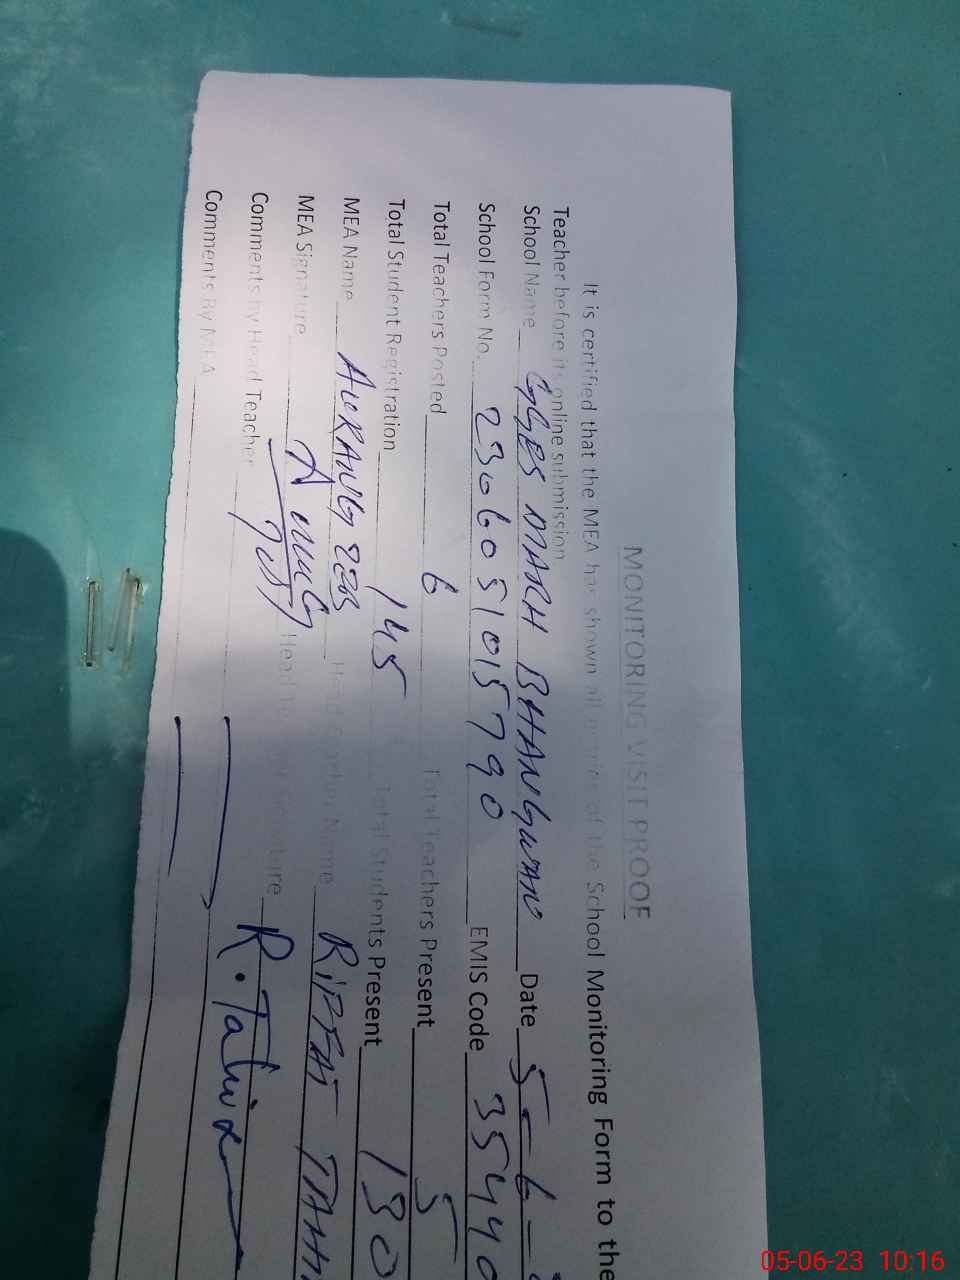 MONITORING VISIT PROOF
It is certified that the MEA has shown all entries of the School Monitoring Form to the
Teacher before its online submission
School Name GGES MACH BHANGWAR Date 5-6-
School Form No. 2306051015790 EMIS Code 35440
Total Teachers Posted 6 Total Teachers Present 5
Total Student Registration 145 Total Students Present 130
MEA Name AURANGZEB Head Teacher Name RIFFAT
MEA Signature Head Teacher Signature R. Tahira
Comments by Head Teacher
Comments By MEA
05-06-23 10:16